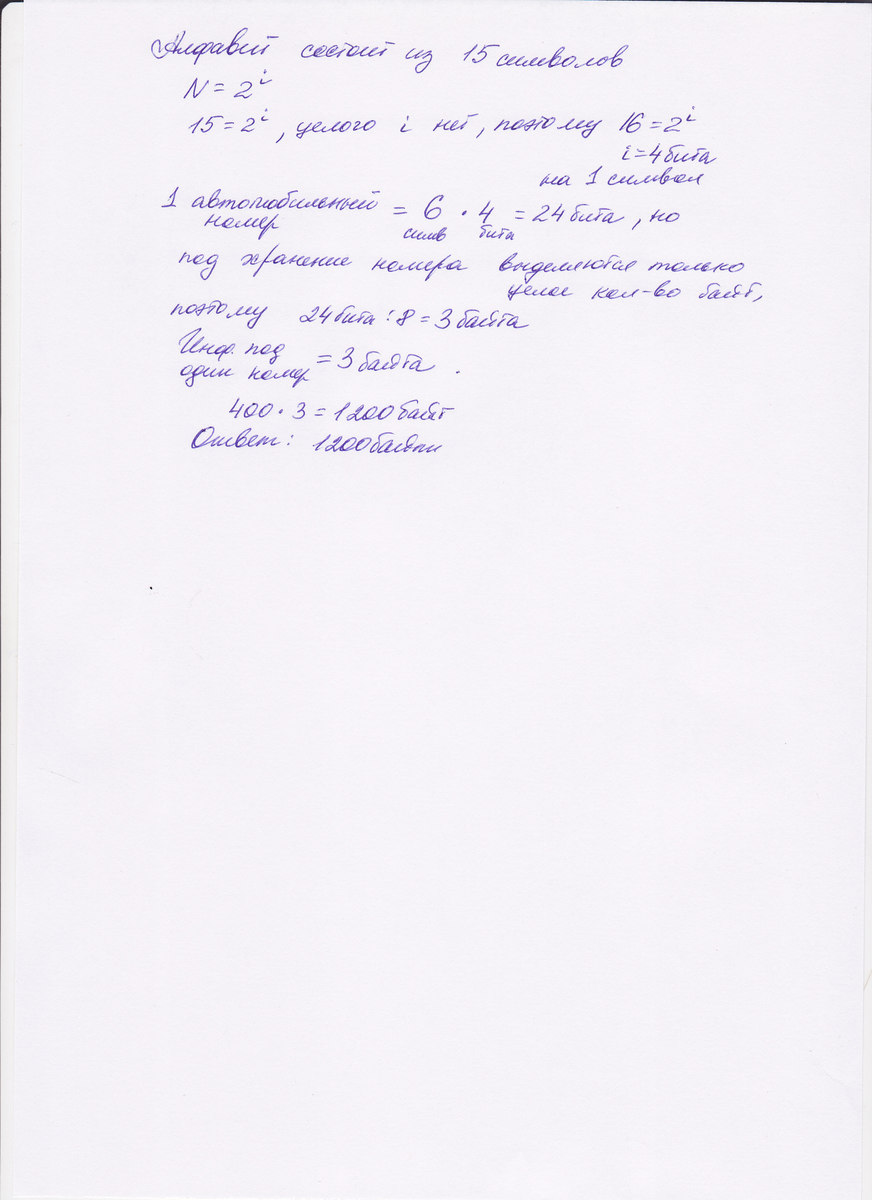 Алфавит состоит из 15 символов
N = 2^i
15 = 2^i, целого i нет, поэтому 16 = 2^i
i = 4 бита
на 1 символ
1 автомобильный номер = 6 симв · 4 бита = 24 бита, но
под хранение номера выделяются только
целое кол-во байт,
поэтому 24 бита : 8 = 3 байта
Инф. под один номер = 3 байта.
400 · 3 = 1200 байт
Ответ: 1200 байт